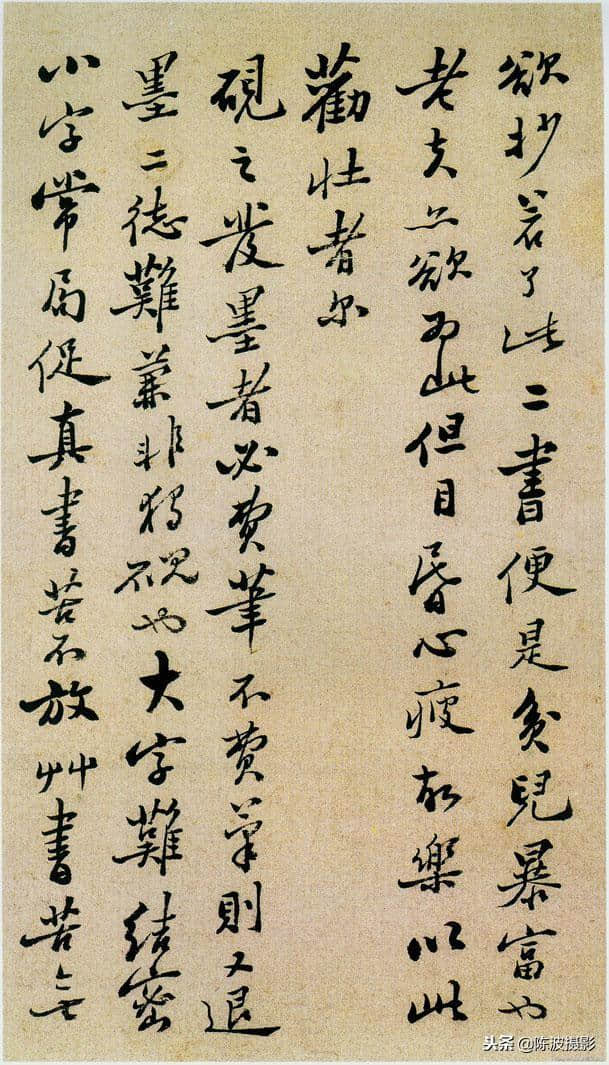 欲抄若了此二書便是貧兒暴富也
老夫亦欲為此但目昏心疲故樂以此
勸壯者尔
硯之發墨者必費筆不費筆則又退
墨二德難兼非獨硯也大字難結密
小字常局促真書苦不放艸書苦無
头条 @陈波摄影